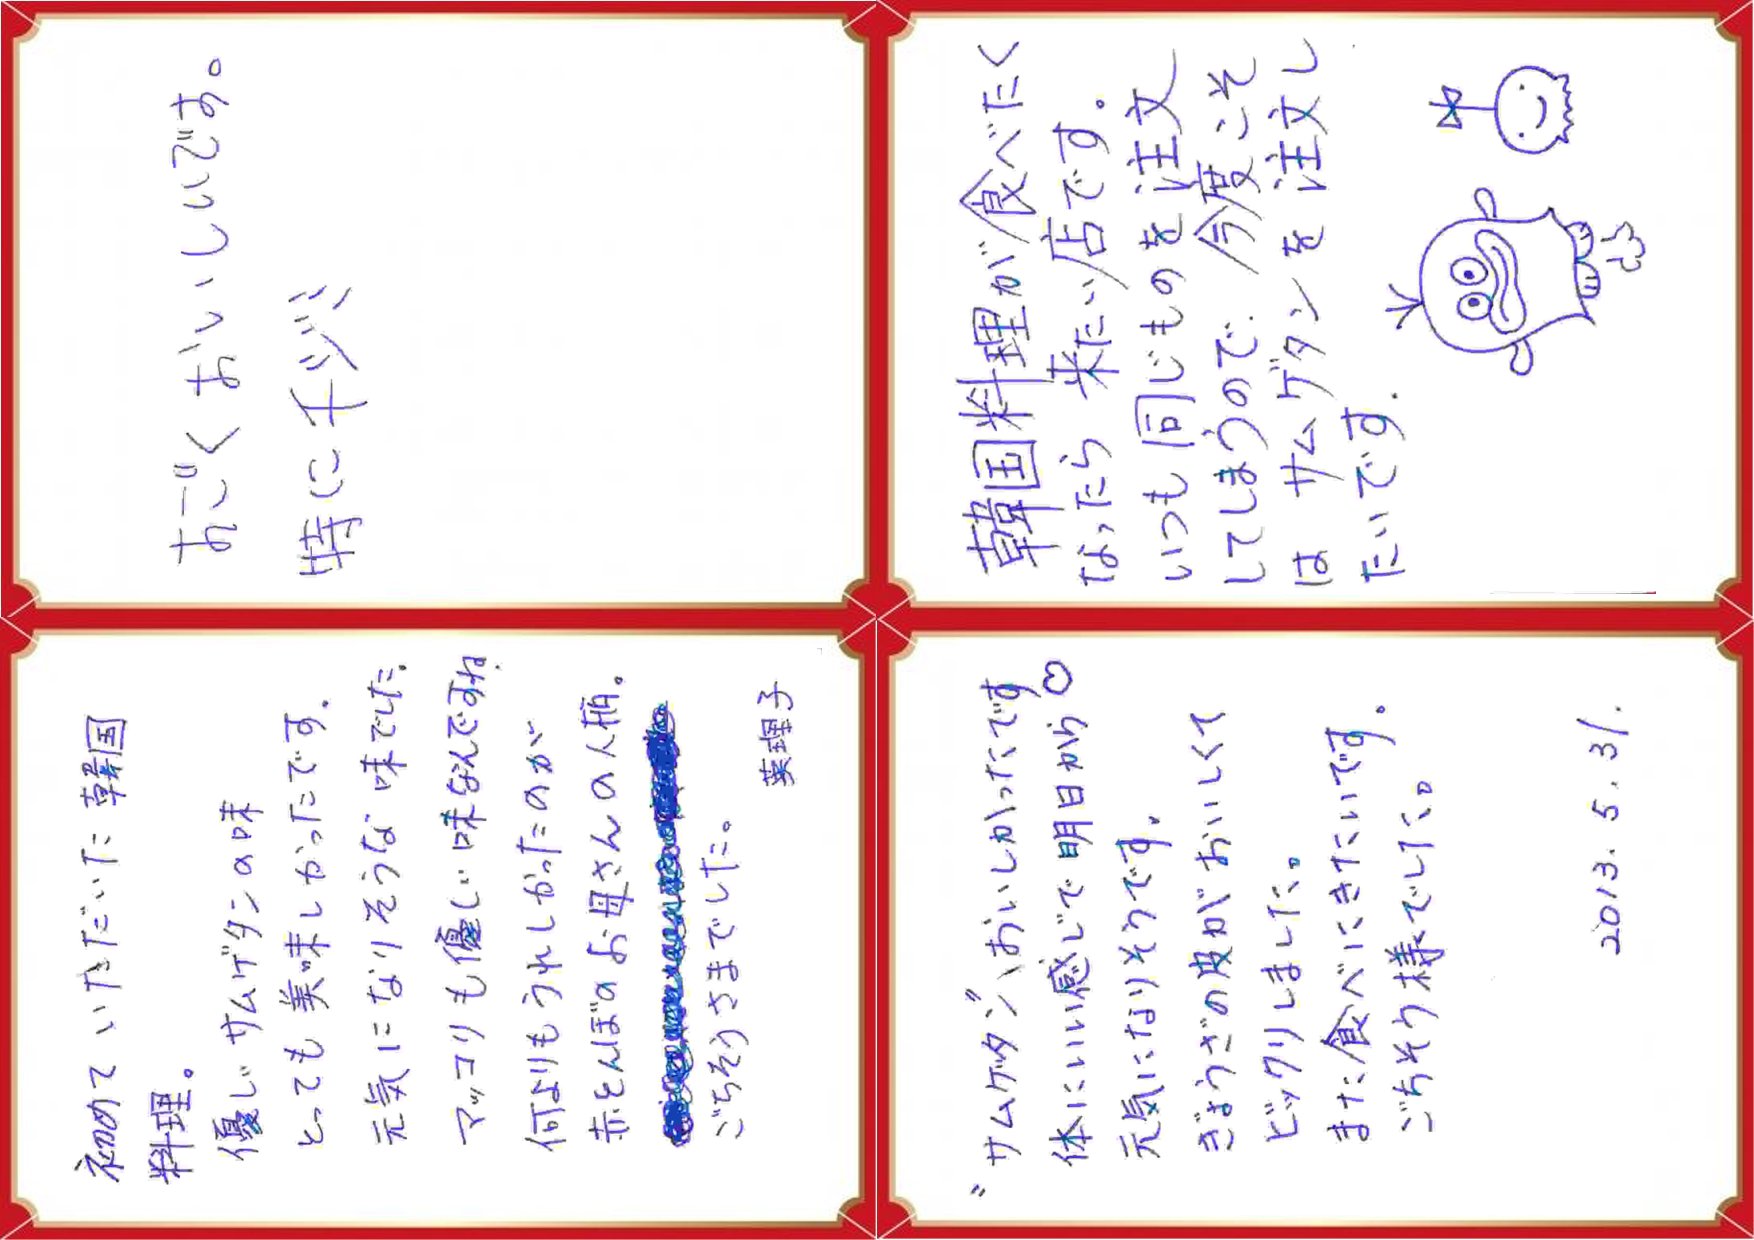 すごくおいしいです。
特にチヂミ
韓国料理が食べたく
なったら 来たい店です。
いつも同じものを注文
してしまうので、今度こそ
は サムゲタンを注文し
たいです.
初めていただいた韓国
料理。
優しいサムゲタンの味
とっても美味しかったです。
元気になりそうな味でした。
マッコリも優しい味なんですね
何よりもうれしかったのが
赤とんぼのお母さんの人柄。
ごちそうさまでした。
茉理子
"サムゲタン"おいしかったです
体にいい感じで明日から♡
元気になりそうです。
ぎょうざの皮がおいしくて
ビックリしました。
また食べにきたいです。
ごちそう様でした。
2013.5.31.